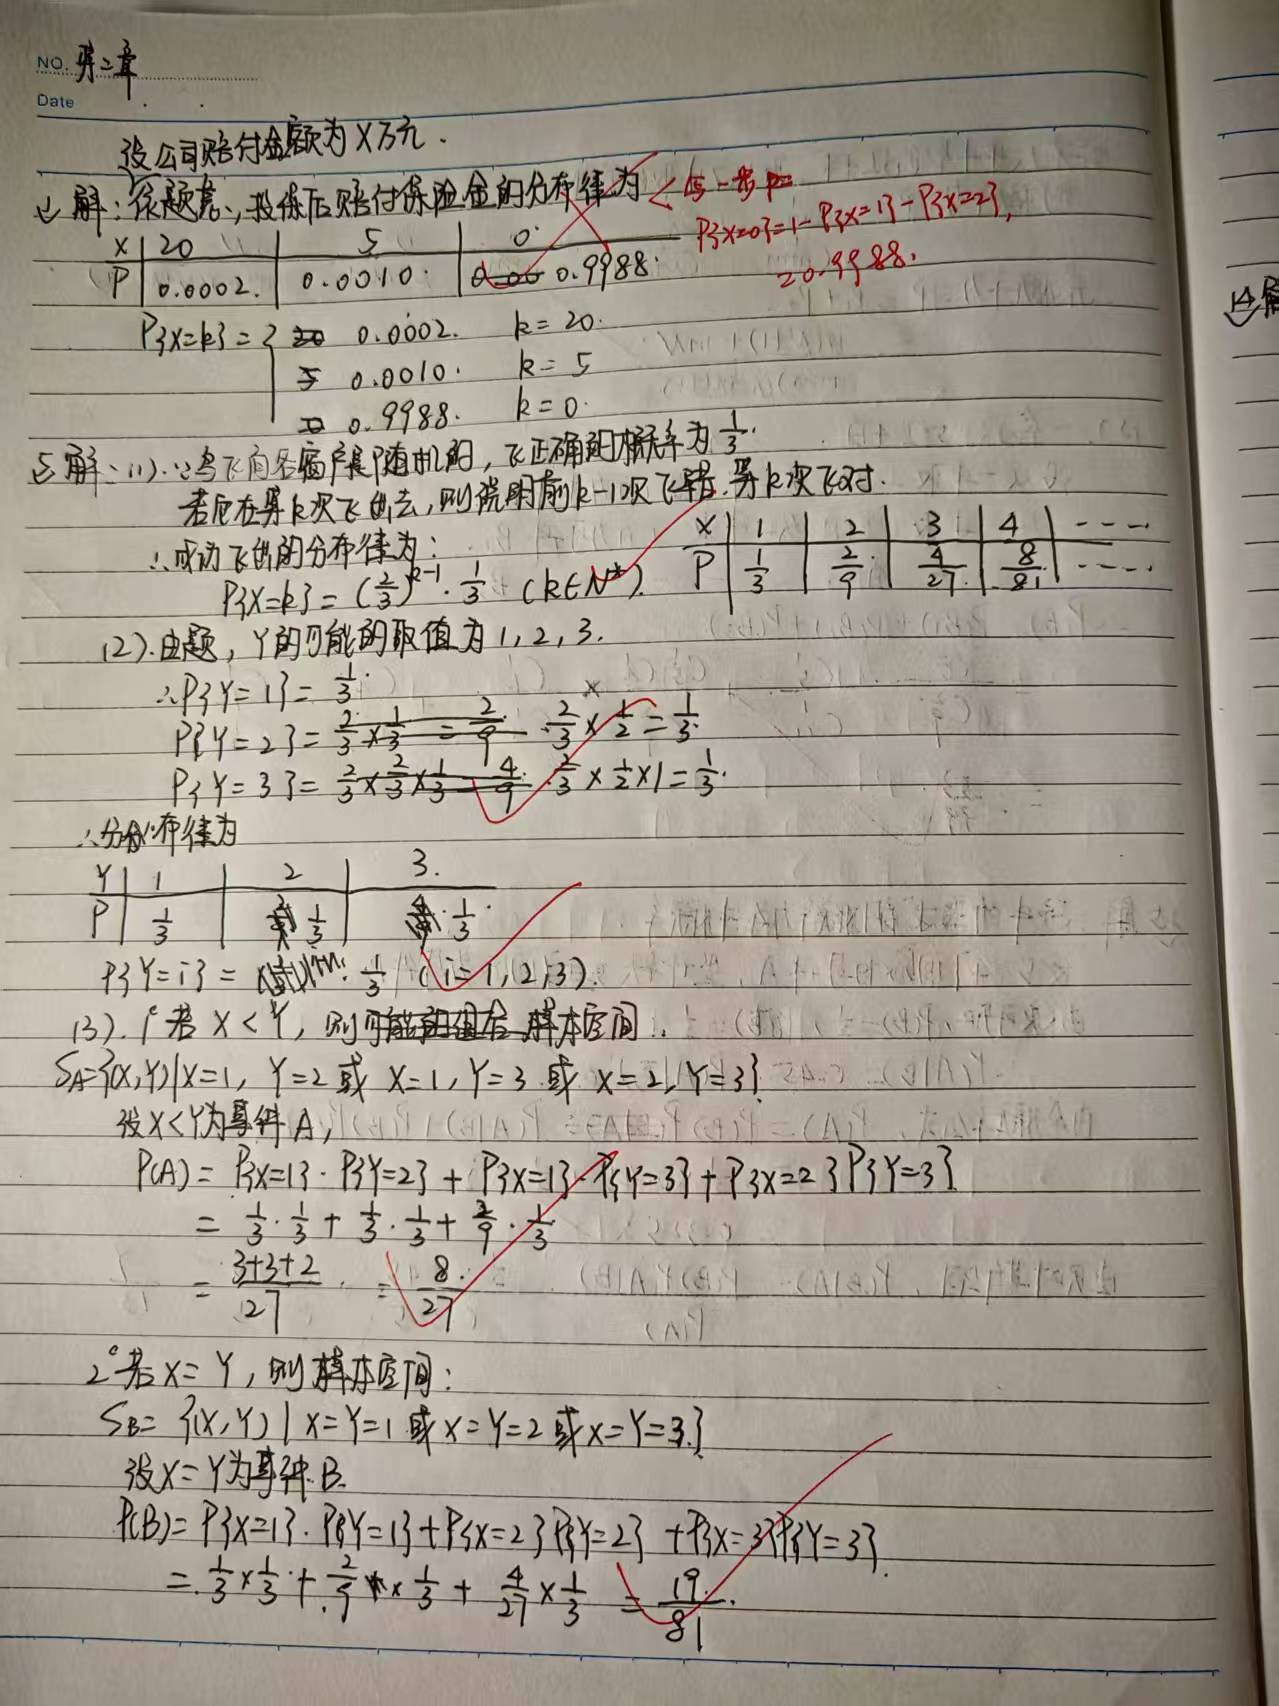 NO. 第二章
Date
设公司赔付金额为X万元.
解: 依题意, 投保后赔付保险金的分布律为 < 写一步P=
P{X=0}=1-P{X=1}-P{X=2},
=0.9988.
X 20 5 0
P 0.0002. 0.0010. 0.9988.
P{X=k}={ 0.0002. k=20.
0.0010. k=5
0.9988. k=0.
5 解: (1).∵鸟飞向各窗户是随机的, 飞正确的概率为 1/3.
若它在第k次飞出去, 则说明前k-1次飞错. 第k次飞对.
∴成功飞出的分布律为:
X 1 2 3 4 ····
P 1/3 2/9 4/27 8/81 ·····
P{X=k}=(2/3)^{k-1}·1/3 (k∈N*).
(2).由题, Y的可能的取值为1,2,3.
∴P{Y=1}=1/3.
P{Y=2}= 2/3×1/3=2/9 2/3×1/2=1/3.
P{Y=3}= 2/3×2/3×1/3 4/9 2/3×1/2×1=1/3.
∴分布律为
Y 1 2 3.
P 1/3 1/3 1/3.
P{Y=i}= 1/3 (i=1,2,3).
(3). 1°若X<Y, 则可能的组合 样本空间:
S_A={(X,Y)|X=1, Y=2 或 X=1, Y=3 或 X=2, Y=3}
设X<Y为事件A,
P(A)=P{X=1}·P{Y=2}+P{X=1}·P{Y=3}+P{X=2}P{Y=3}
= 1/3·1/3+1/3·1/3+2/9·1/3
= (3+3+2)/27 = 8/27
2°若X=Y, 则样本空间:
S_B={(X,Y)|X=Y=1 或 X=Y=2 或 X=Y=3.}
设X=Y为事件B.
P(B)=P{X=1}·P{Y=1}+P{X=2}P{Y=2}+P{X=3}P{Y=3}.
= 1/3×1/3+2/9×1/3+4/27×1/3 = 19/81.
14 解